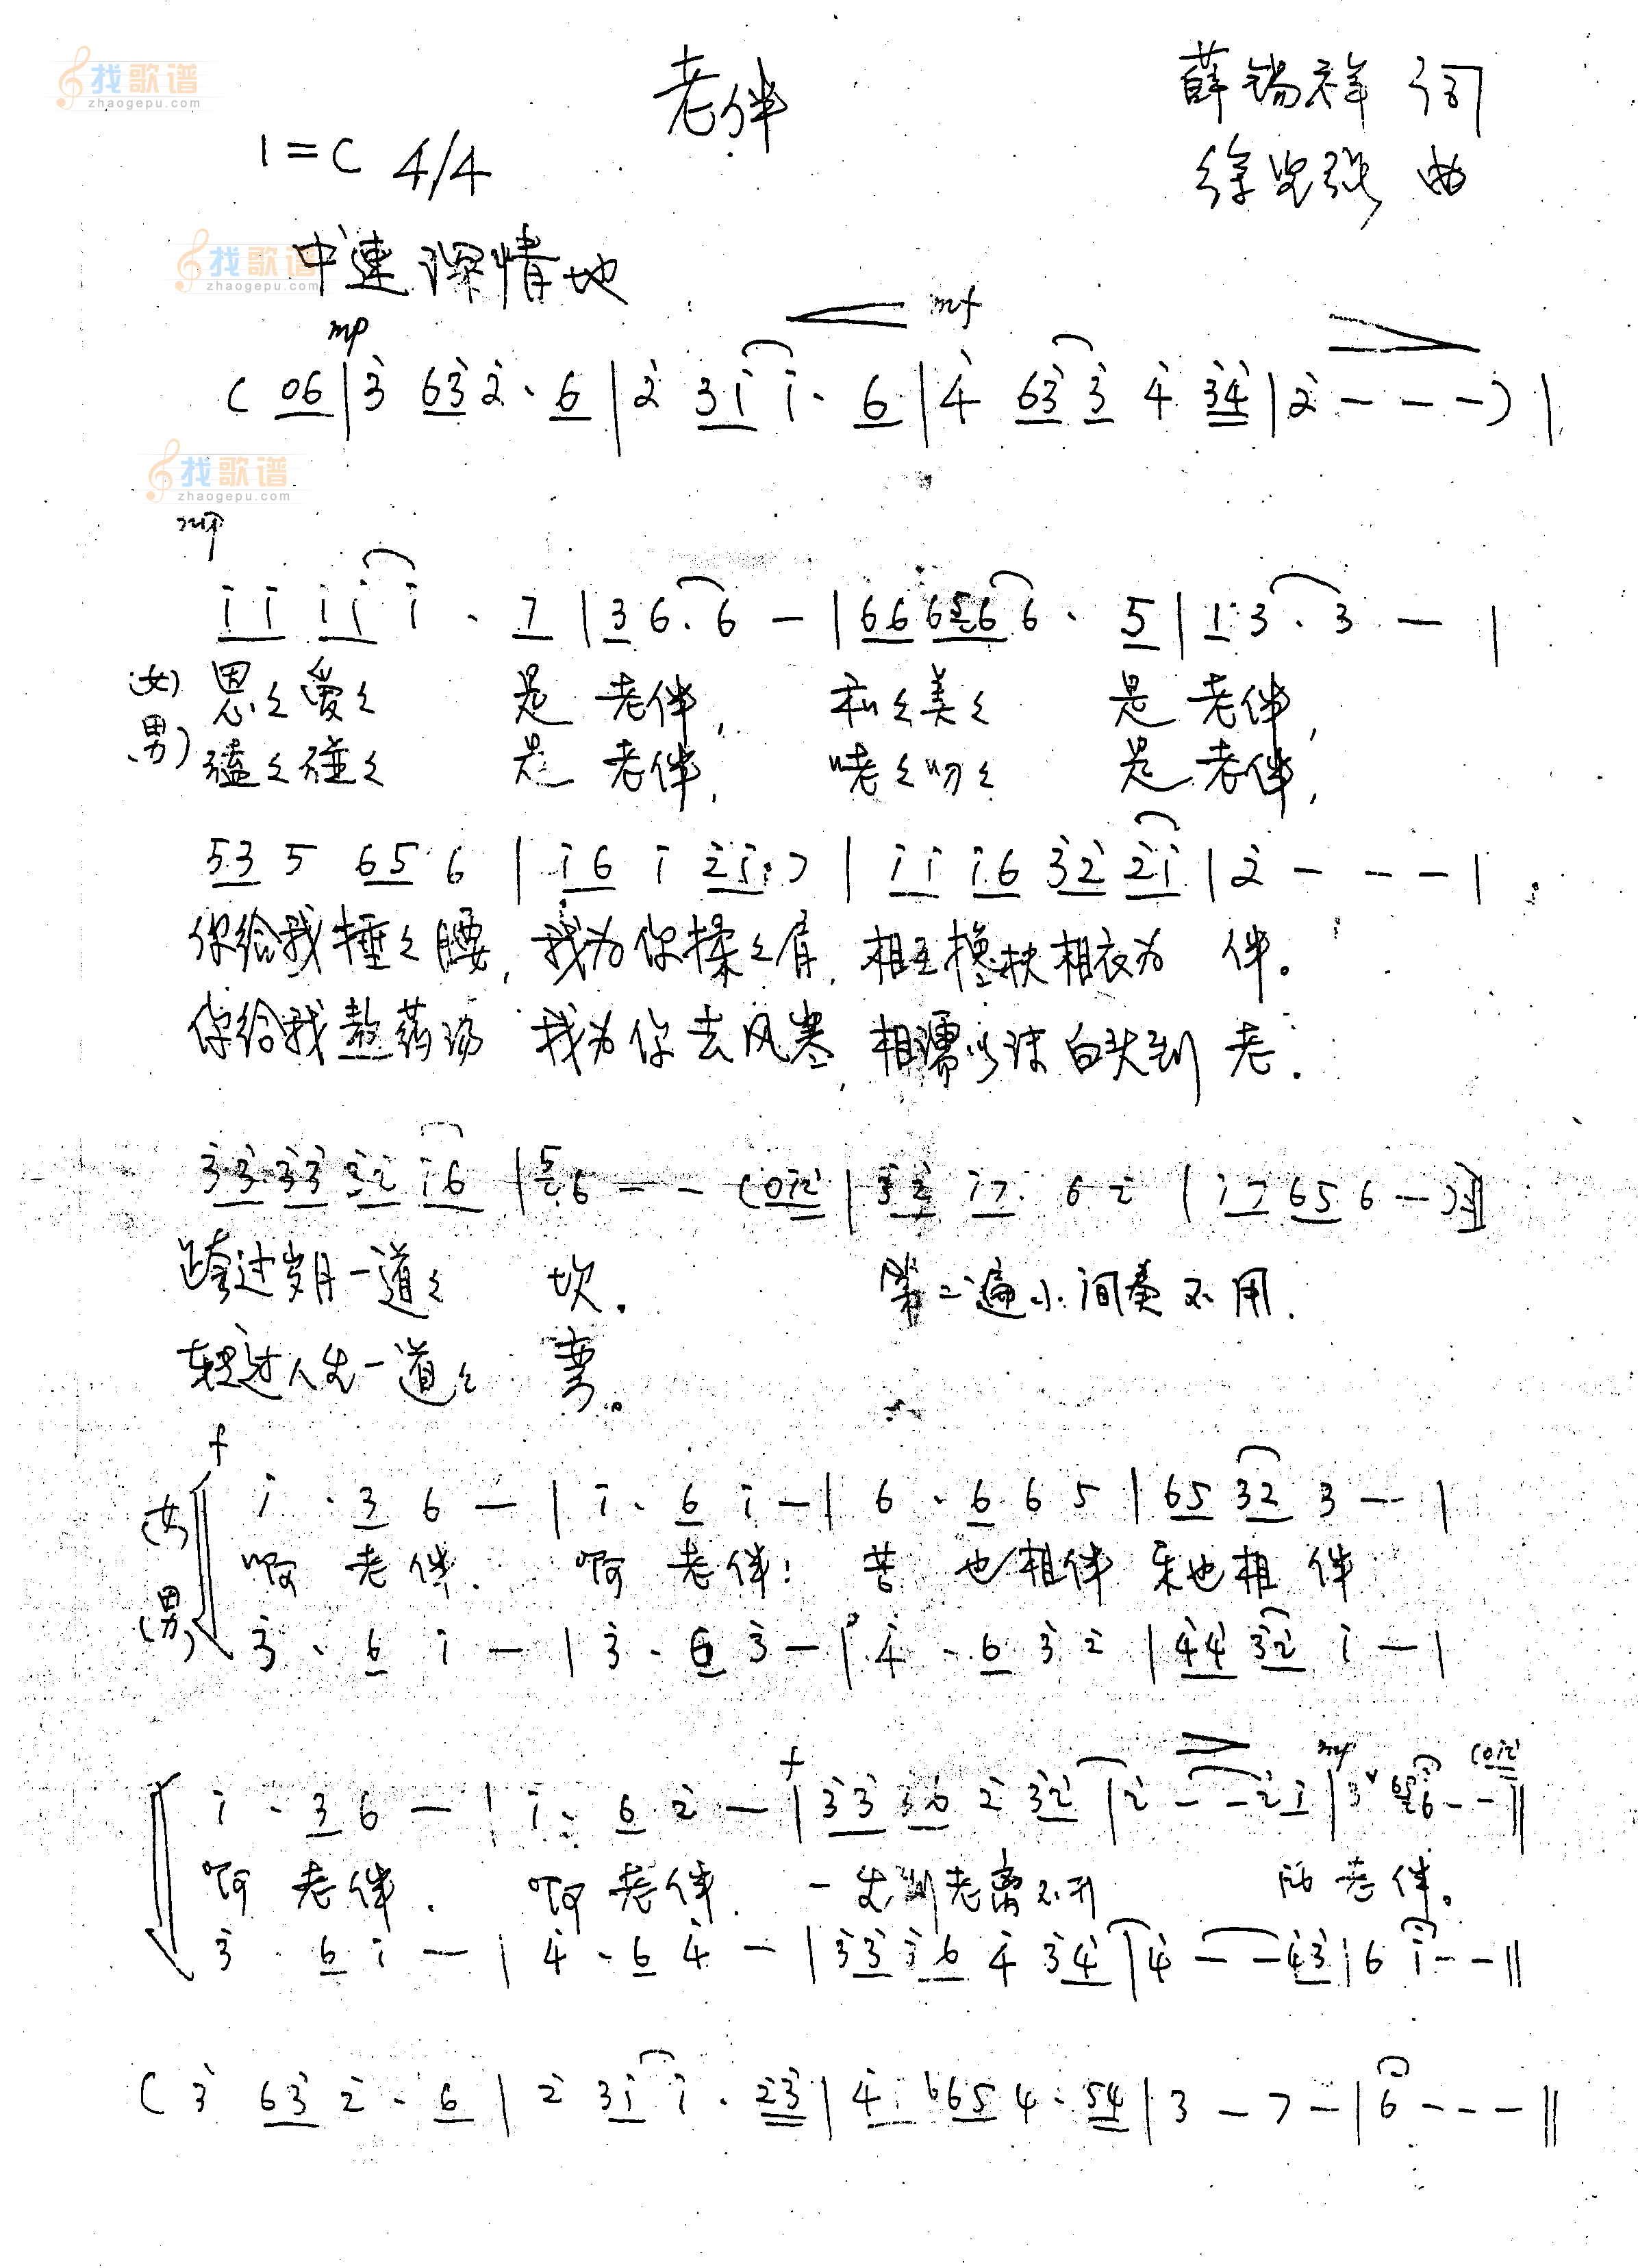 找歌谱
zhaogepu.com
老伴
薛锡祥 词
1=C 4/4
曲
找歌谱
zhaogepu.com
中速 深情地
mp mf
( 06 | 3̇ 63̇ 2̇· 6 | 2̇ 3̇1̇ 1̇· 6 | 4̇ 63̇ 3̇ 4̇ 3̇4̇ | 2̇ - - - ) |
找歌谱
zhaogepu.com
mp
1̇1̇ 1̇1̇ 1̇ · 7 | 3 6· 6 - | 66 656 6 · 5 | 1 3 · 3 - |
(女) 恩々爱々 是 老伴, 和々美々 是 老伴,
男) 磕々碰々 是 老伴, 唠々叨々 是 老伴,
53 5 65 6 | 1̇6 1̇ 2̇1̇ 7 | 1̇1̇ 1̇6 3̇2̇ 2̇1̇ | 2̇ - - - |
你给我捶々腰, 我为你揉々肩, 相互搀扶相衣为 伴。
你给我熬药汤 我为你去风寒, 相濡以沫白头到 老.
3̇3̇ 3̇3̇ 3̇2̇ 1̇6 | 5 6 - - (01̇2̇ | 3̇2̇ 1̇7 6 2̇ | 1̇7 65 6 - ) :||
跨过岁月一道々 坎. 第二遍小间奏不用.
转过人生一道々 弯。
f
(女) 1̇ · 3 6 - | 1̇ · 6 1̇ - | 6 · 6 6 5 | 65 32 3 - |
啊 老伴. 啊 老伴! 苦 也相伴 乐也相 伴
(男) 3̇ · 6 1̇ - | 3̇ · 6 3̇ - | 4̇ · 6 3̇ 2̇ | 4̇4̇ 3̇2̇ 1̇ - |
f mp (01̇2̇
1̇ · 3 6 - | 1̇ · 6 2̇ - | 3̇3̇ 3̇6 2̇ 3̇2̇ | 2̇ - - 2̇1̇ | 3̇ 6 - - ||
啊 老伴. 啊 老伴. 一生到老离不开 老伴。
3̇ · 6 1̇ - | 4̇ · 6 4̇ - | 3̇3̇ 3̇6 4̇ 3̇4̇ | 4̇ - - 4̇3̇ | 6 1̇ - - ||
( 3̇ 63̇ 2̇ · 6 | 2̇ 3̇1̇ 1̇ · 2̇3̇ | 4̇ 665 4 · 54 | 3 - 7 - | 6 - - - ||